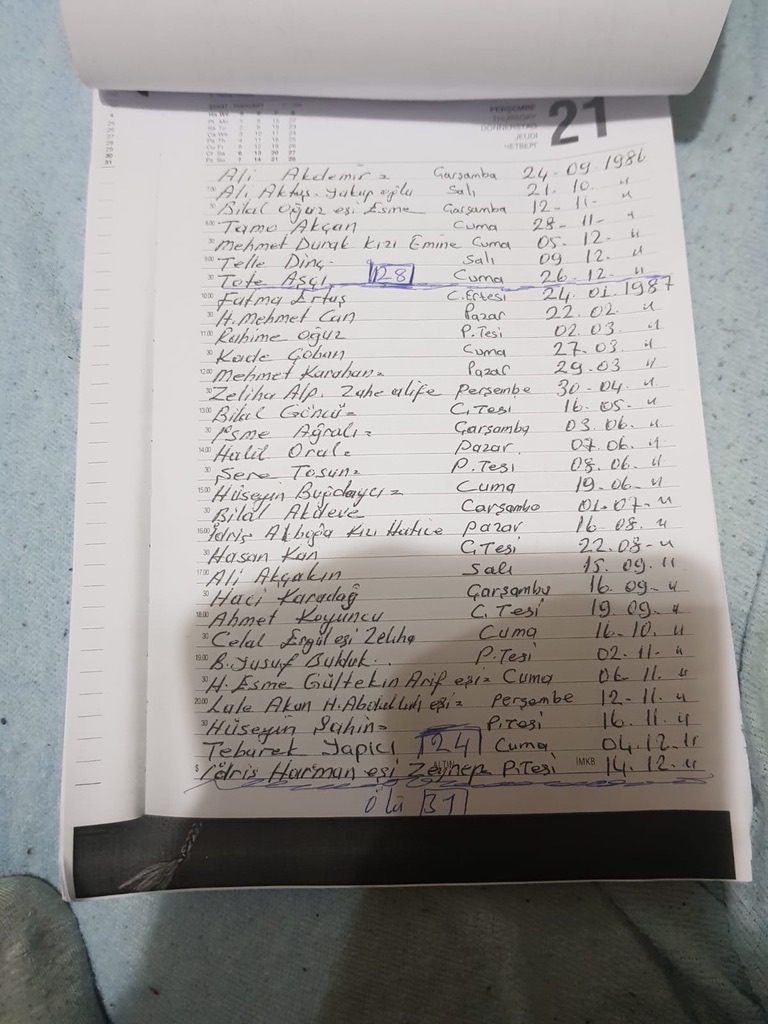 PERŞEMBE
THURSDAY
DONNERSTAG
JEUDI
ЧЕТВЕРГ
21
Ali Akdemir = Çarşamba 24-09-1986
Ali Aktaş. Yakup oğlu Salı 21. 10. "
Bilal Oğuz eşi Esme Çarşamba 12-11- "
Tamo Akçan Cuma 28-11- "
Mehmet Durak Kızı Emine Cuma 05. 12. "
Telle Dinç. Salı 09 12. "
Tote Aşçı 128 Cuma 26-12. "
Fatma Ertaş C.Ertesi 24. 01. 1987
H. Mehmet Can Pazar 22. 02. "
Rahime Oğuz P.Tesi 02. 03. "
Kade Çoban Cuma 27. 03 "
Mehmet Karahan = Pazar 29. 03 "
Zeliha Alp. Perşembe 30-04. "
Bilal Göncü = C.Tesi 16-05- "
Esme Ağralı = Çarşamba 03. 06. "
Halil Oral = Pazar. 07. 06. "
Şere Tosun = P.Tesi 08. 06. "
Hüseyin Buğdaycı = Cuma 19-06- "
Bilal Çarşamba 01-07- "
İdris Akboğa Kızı Hatice Pazar 16 08. "
Hasan Kan C.Tesi 22. 08- "
Ali Akçakın Salı 15. 09. "
Haci Karadağ Çarşamba 16. 09- "
Ahmet Koyuncu C.Tesi 19. 09. "
Celal Ergül eşi Zeliha Cuma 16-10. "
B. Yusuf P.Tesi 02. 11- "
H. Esme Gültekin Arif eşi = Cuma 06 11. "
Lale Akan H. Abdullah eşi = Perşembe 12-11. "
Hüseyin Şahin = P.Tesi 16. 11. "
Tebarek Yapıcı 124 Cuma 04.12. "
İdris Harman eşi Zeynep P.Tesi İMKB 14. 12. "
Ölü 31